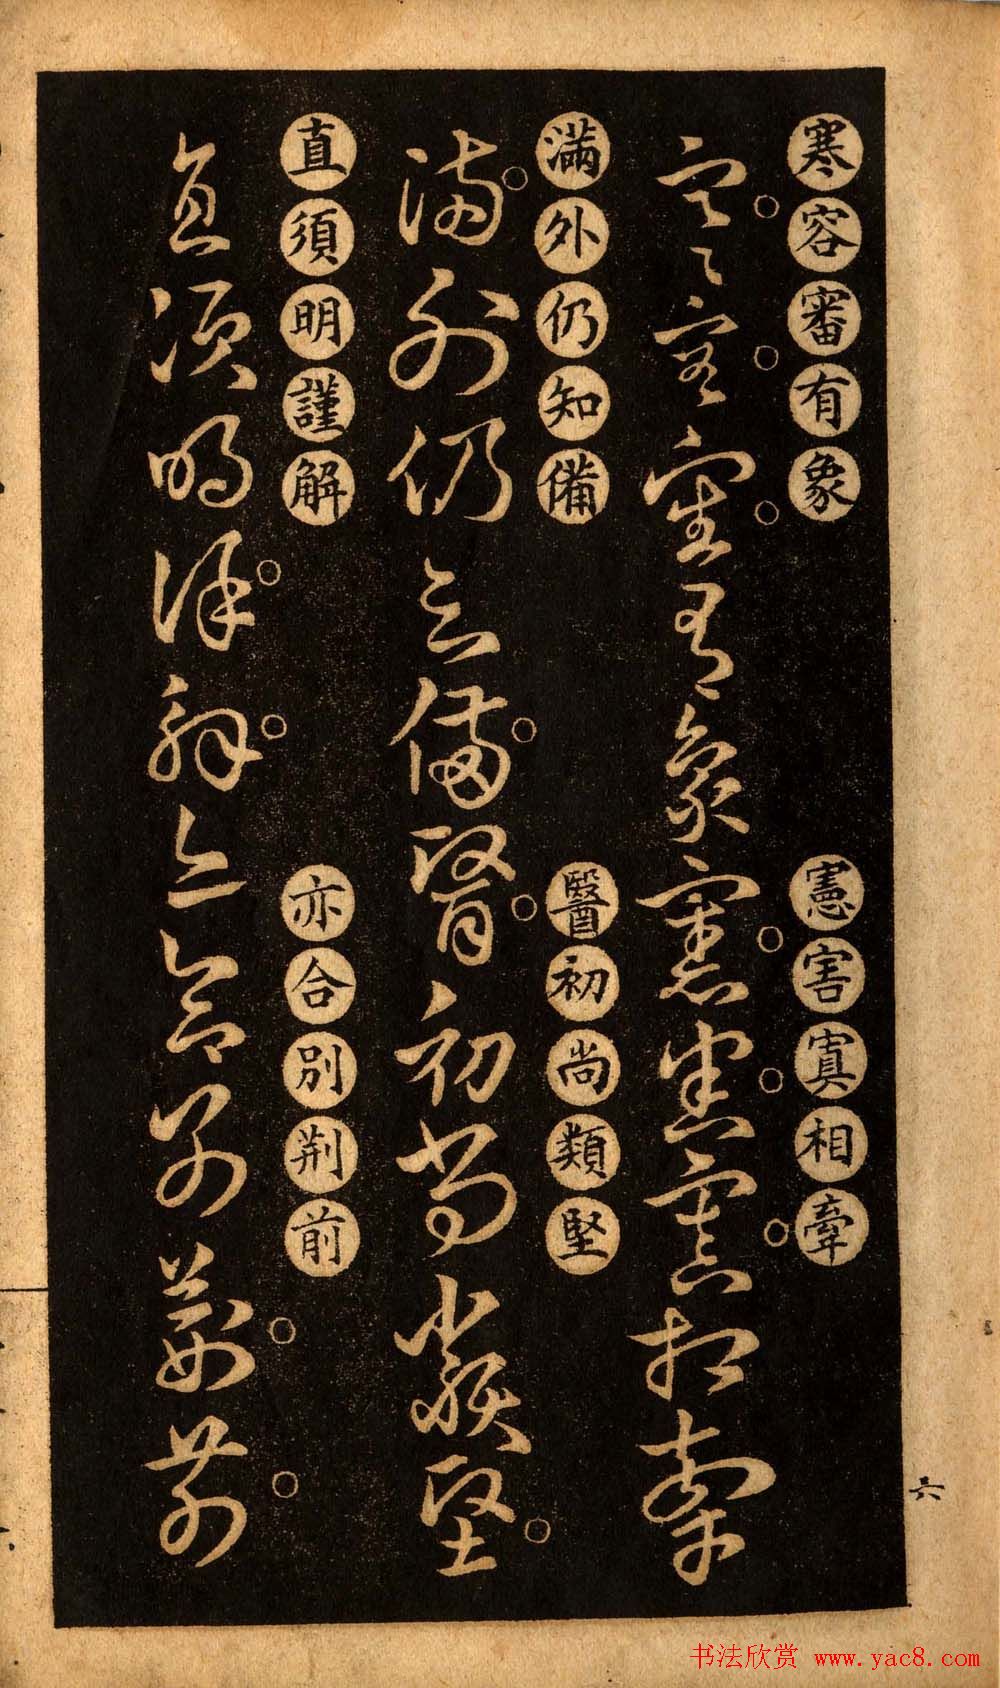 寒容審有象
憲害寘相牽
滿外仍知備
醫初尚類堅
直須明謹解
亦合別荆前
六
书法欣赏 www.yac8.com